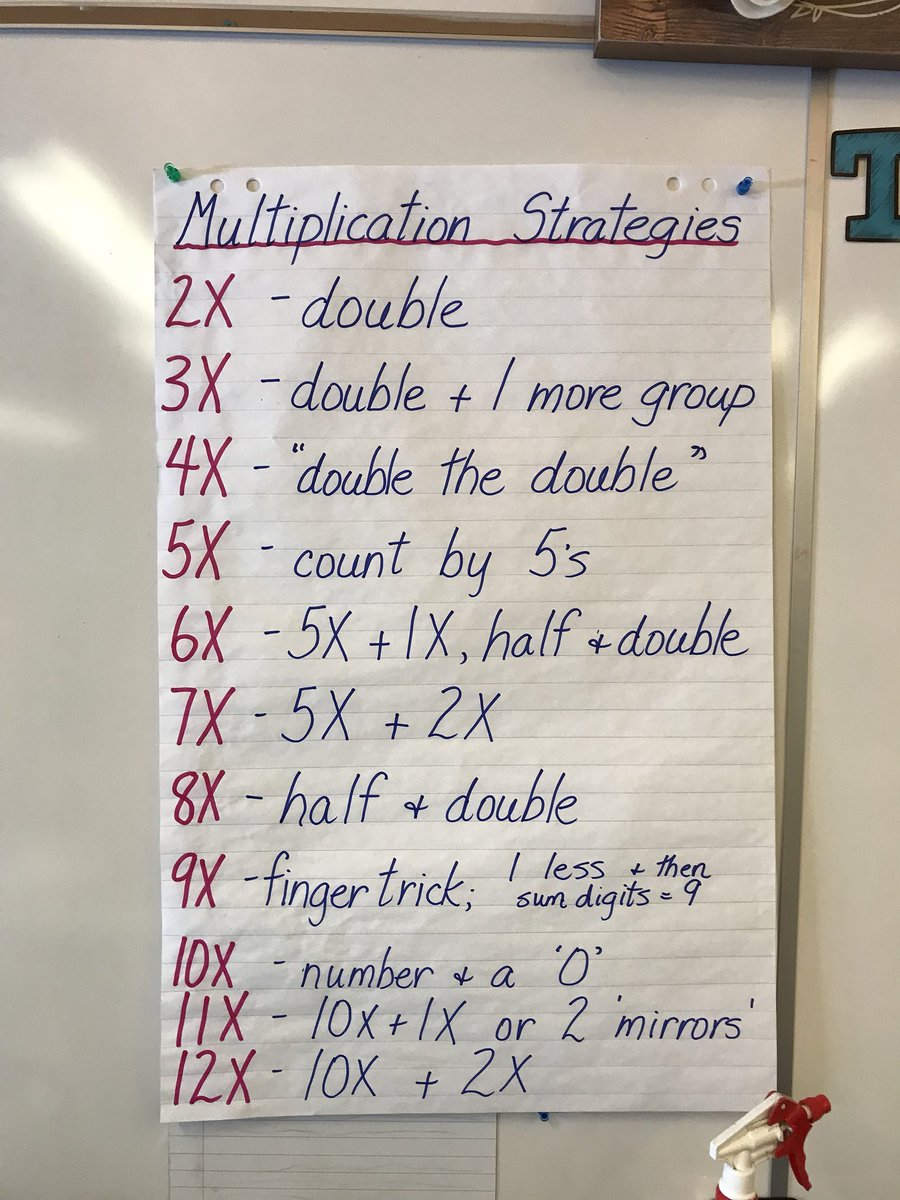 Multiplication Strategies
2X - double
3X - double + 1 more group
4X - "double the double"
5X - count by 5's
6X - 5X + 1X, half & double
7X - 5X + 2X
8X - half & double
9X - finger trick; 1 less & then
sum digits = 9
10X - number & a '0'
11X - 10X + 1X or 2 'mirrors'
12X - 10X + 2X
T